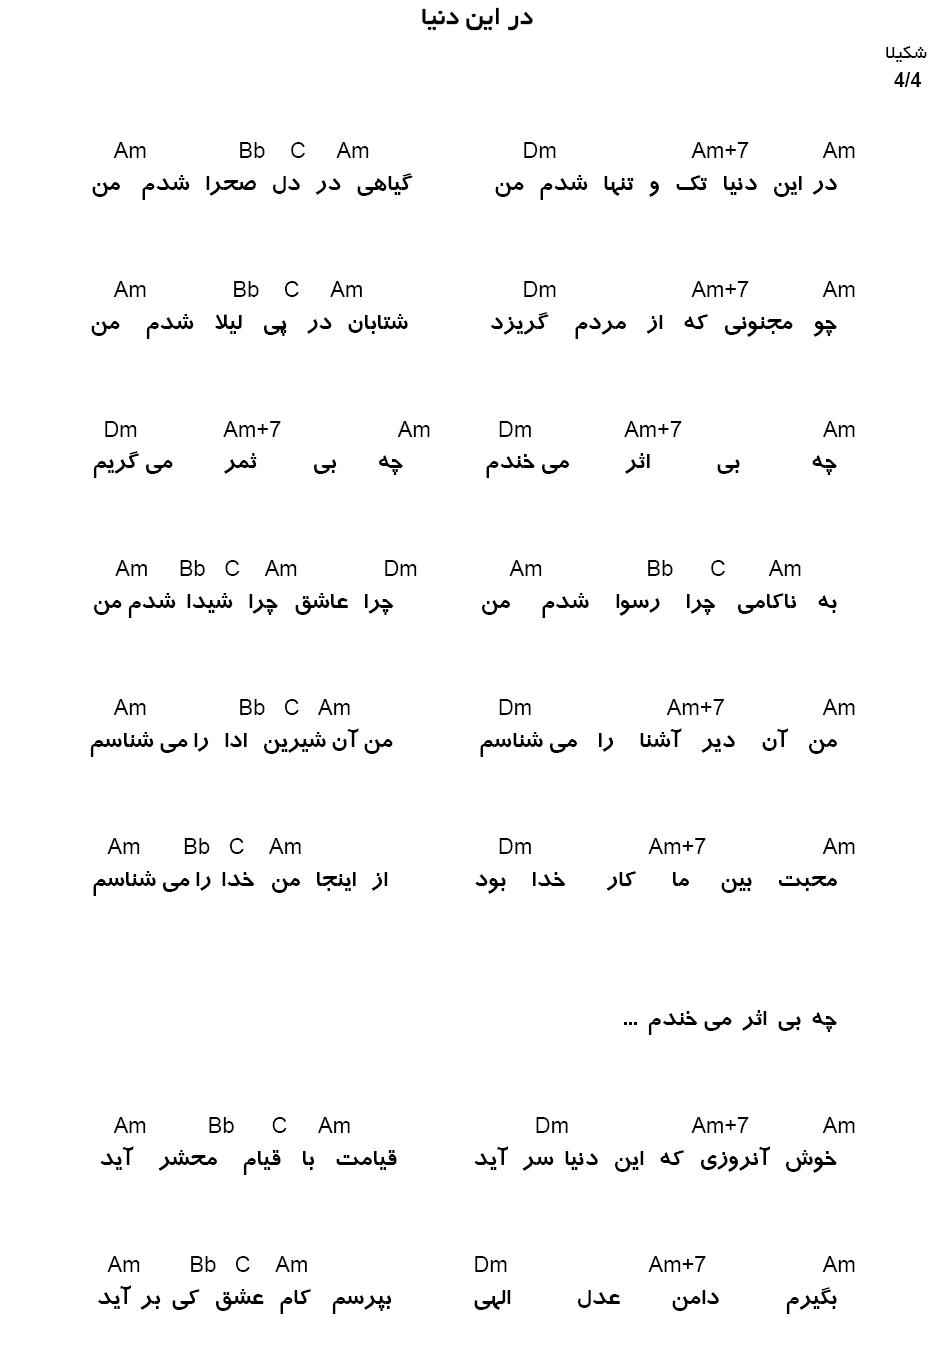 در این دنیا
شکیلا
4/4
Am Bb C Am Dm Am+7 Am
در این دنیا تک و تنها شدم من گیاهی در دل صحرا شدم من
Am Bb C Am Dm Am+7 Am
چو مجنونی که از مردم گریزد شتابان در پی لیلا شدم من
Dm Am+7 Am Dm Am+7 Am
چه بی اثر می خندم چه بی ثمر می گریم
Am Bb C Am Dm Am Bb C Am
به ناکامی چرا رسوا شدم من چرا عاشق چرا شیدا شدم من
Am Bb C Am Dm Am+7 Am
من آن دیر آشنا را می شناسم من آن شیرین ادا را می شناسم
Am Bb C Am Dm Am+7 Am
محبت بین ما کار خدا بود از اینجا من خدا را می شناسم
چه بی اثر می خندم ...
Am Bb C Am Dm Am+7 Am
خوش آنروزی که این دنیا سر آید قیامت با قیام محشر آید
Am Bb C Am Dm Am+7 Am
بگیرم دامن عدل الهی بپرسم کام عشق کی بر آید